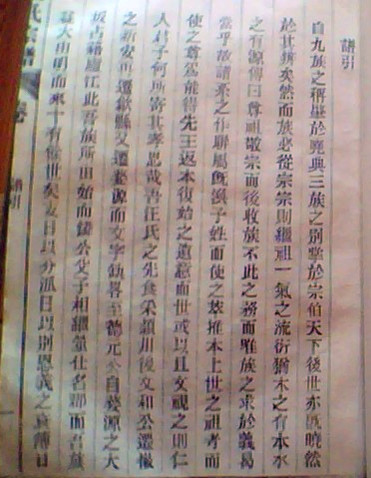 譜引
自九族之稱肇於堯典三族之別掌於宗伯天下後世亦既曉然
於其辨矣然而族必從宗宗則繼祖一氣之流衍猶木之有本水
之有源傳曰尊祖敬宗而後收族不此之務而雖族之求於義曷
當乎故譜系之作聯屬既渙子姓而使之萃推本上世之祖考而
使之尊爲能得先王返本復始之遺意而世或以具文視之則仁
人君子何所寄其孝思哉吾汪氏之先食采潁川後文和公遷
之新安再遷歙縣又遷婺源而文字缺畧至德元公自婺源之大
坂占籍廬江此吾族所由始而 公父子相繼 仕名鄉而吾族
大由明而來十有餘世矣支日以分派日以別恩義之衰薄日
氏宗譜
譜引